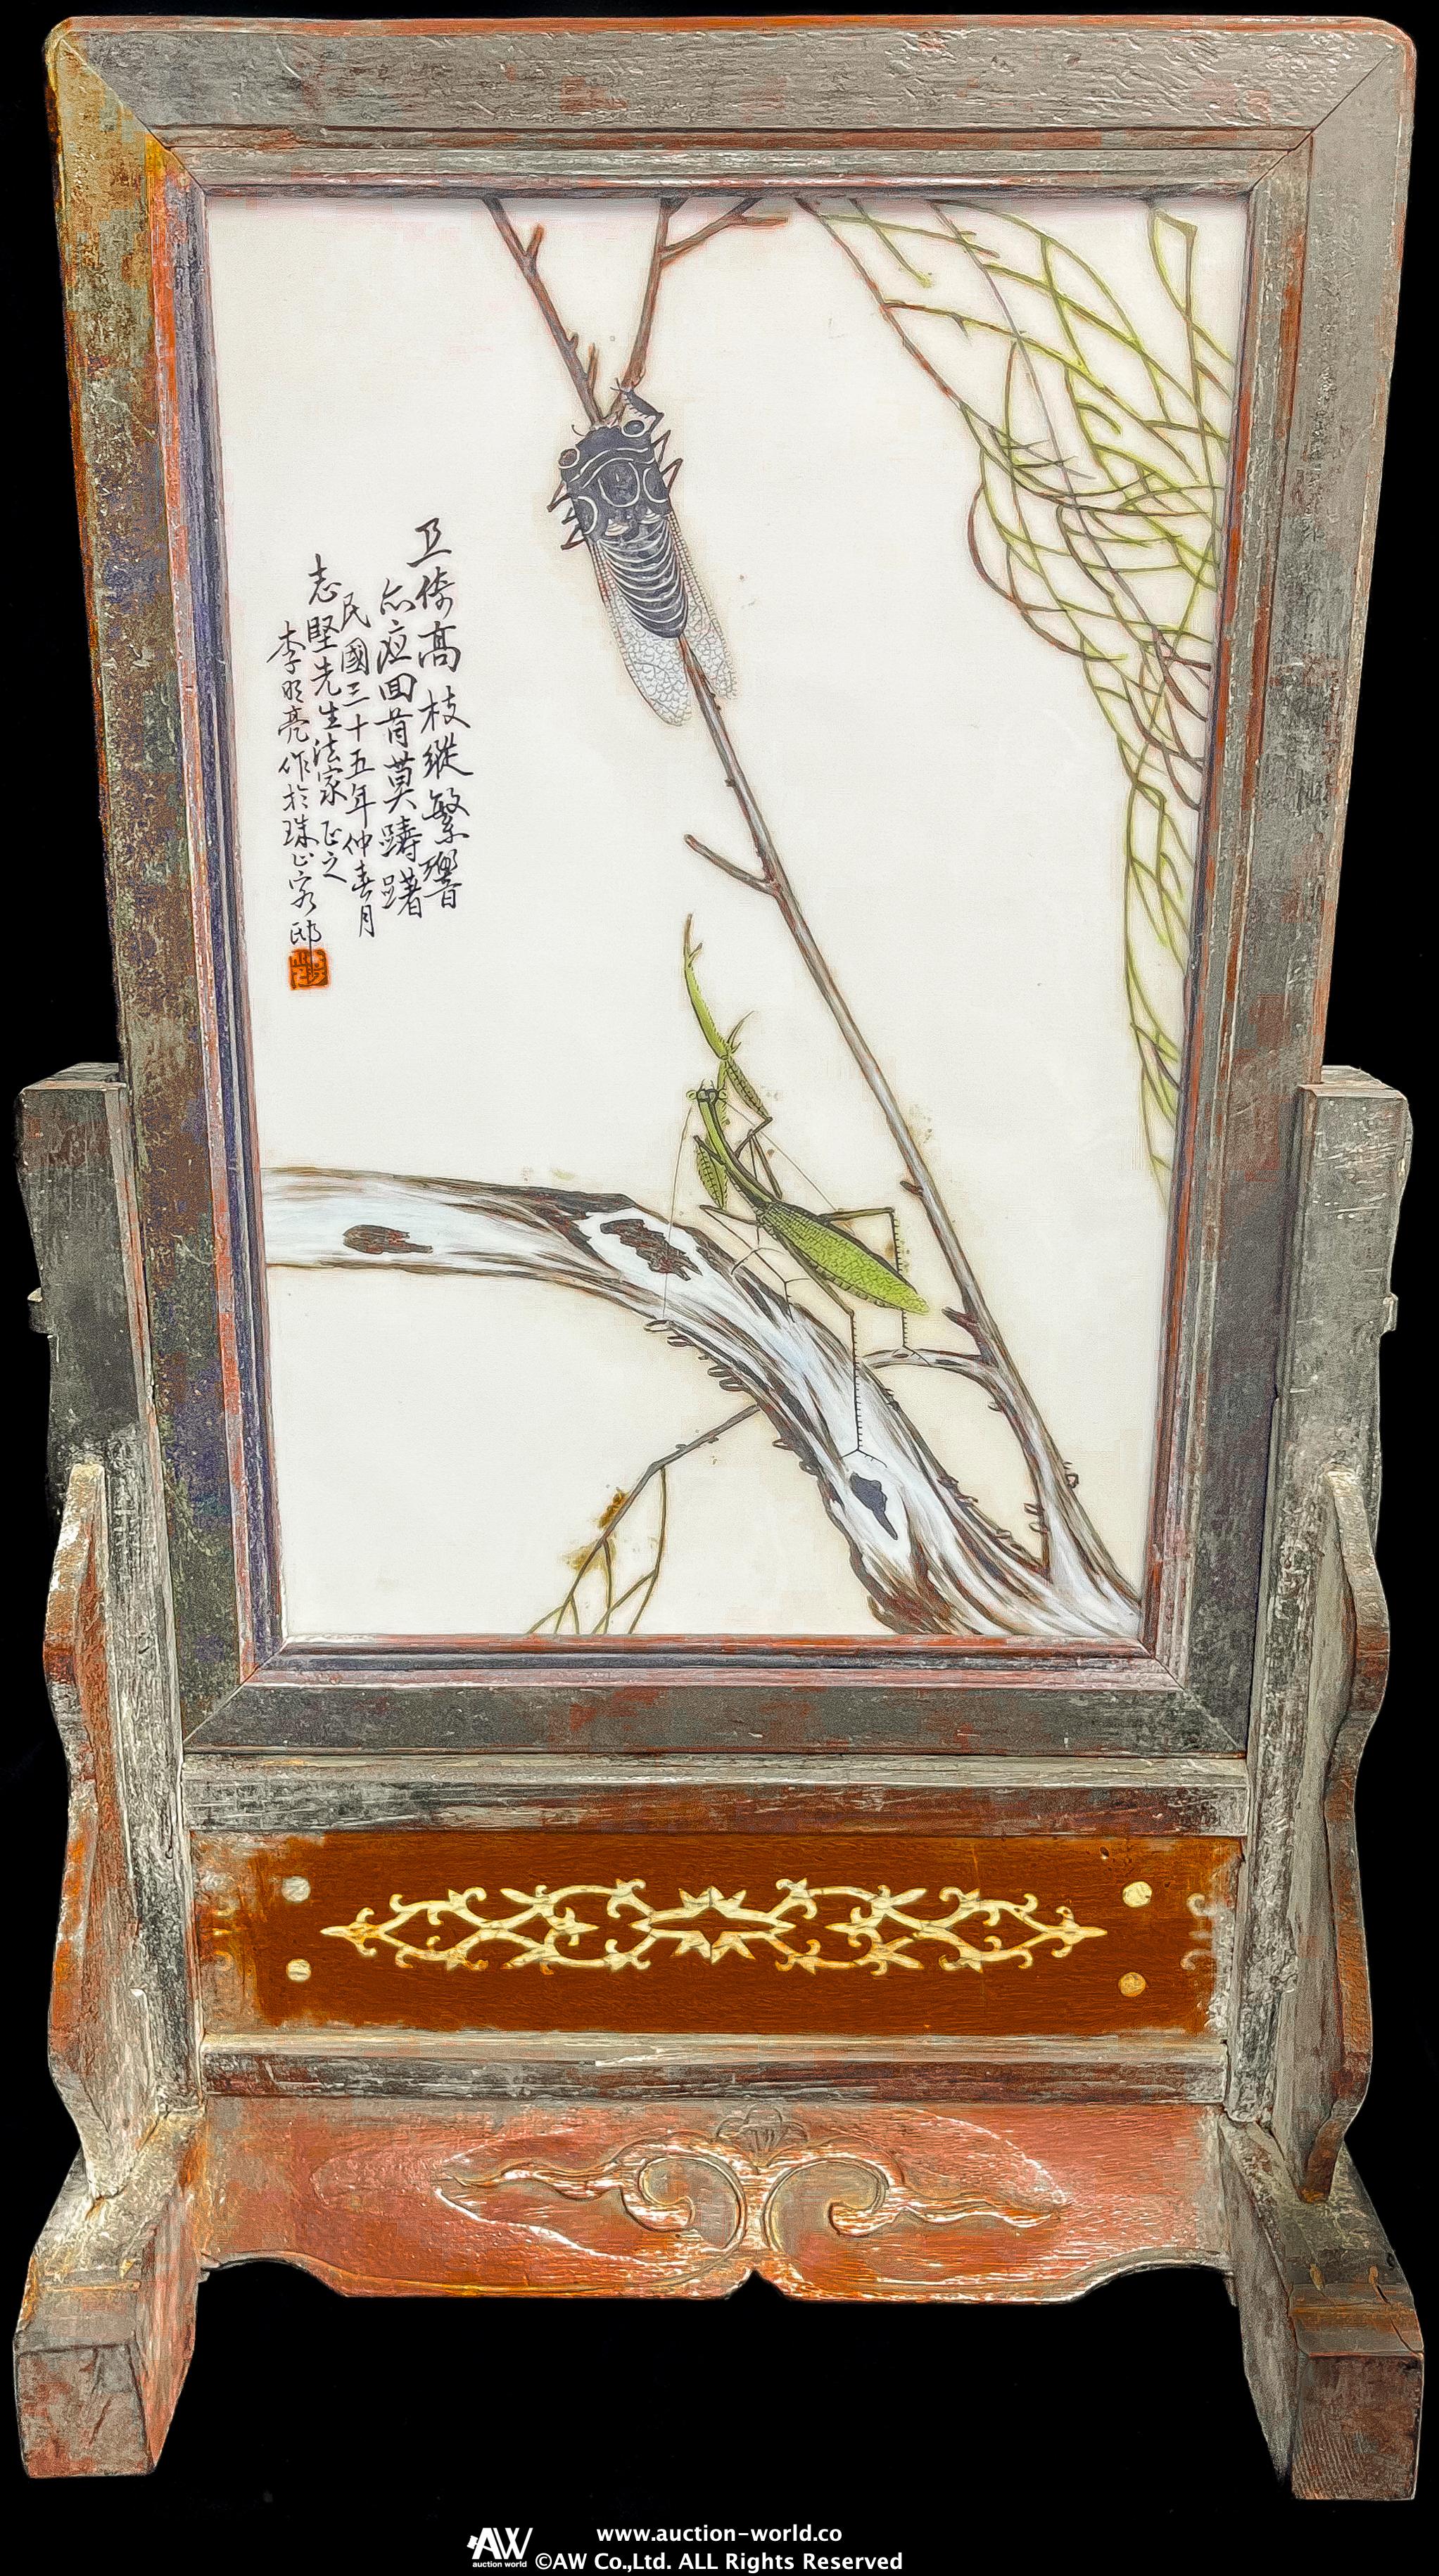 卫倚高枝縱繁響
尒應回首莫躊躇
民國三十五年仲春月
志堅先生法家正之
李明亮作於珠山客邸
AW
auction world
www.auction-world.co
©AW Co.,Ltd. ALL Rights Reserved